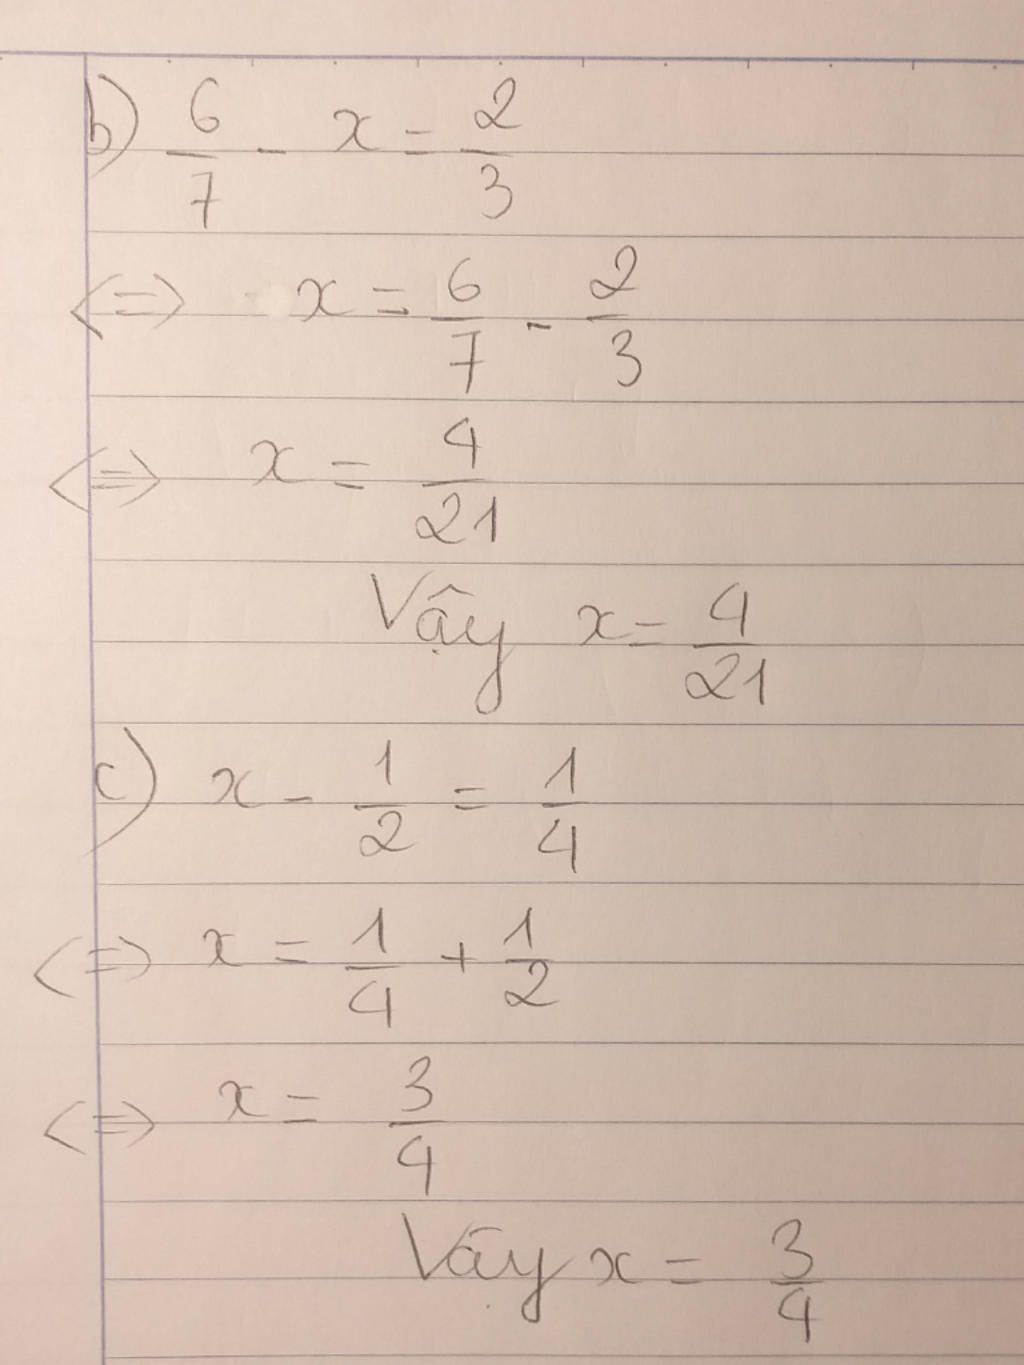 b) 6/7 - x = 2/3
<=> x = 6/7 - 2/3
<=> x = 4/21
Vậy x = 4/21
c) x - 1/2 = 1/4
<=> x = 1/4 + 1/2
<=> x = 3/4
Vậy x = 3/4